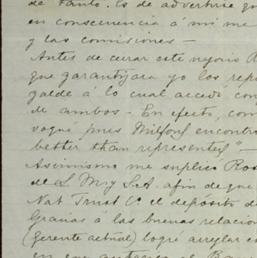 de tanto. Es de advertirse q
en consecuencia á mi me
y las comisiones —
Antes de cerar este negocio R
que garantizara yo los rep
galde á lo cual accedí con
de ambos — En efecto, com
pues Milford encontró
better than represented" —
Asimismo me suplicó Ros
de S. My SA afin de que
Nat Trust Co el deposito d
Gracias á las buenas relacio
(Gerente actual) logré arreglar co
en que